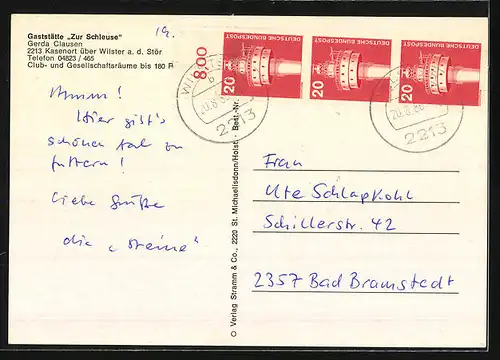 Gaststätte „Zur Schleuse"
Gerda Clausen
2213 Kasenort über Wilster a. d. Stör
Telefon 04823 / 465
Club- und Gesellschaftsräume bis 180 P
19.
8.00
DEUTSCHE BUNDESPOST
20
DEUTSCHE BUNDESPOST
20
DEUTSCHE BUNDESPOST
20
WILSTER
b
20.8.
2213
20.8.
2213
Hier gibt's
schönen Aal zu
futtern!
Liebe Grüße
die „Steine"
© Verlag Stramm & Co., 2220 St. Michaelisdonn/Holst. Best.-Nr.
Frau
Ute Schlapkohl
Schillerstr. 42
2357 Bad Bramstedt